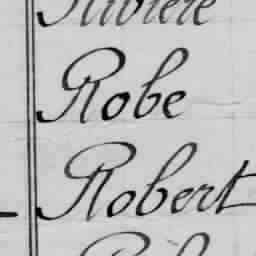 Riviere
Robe
Robert